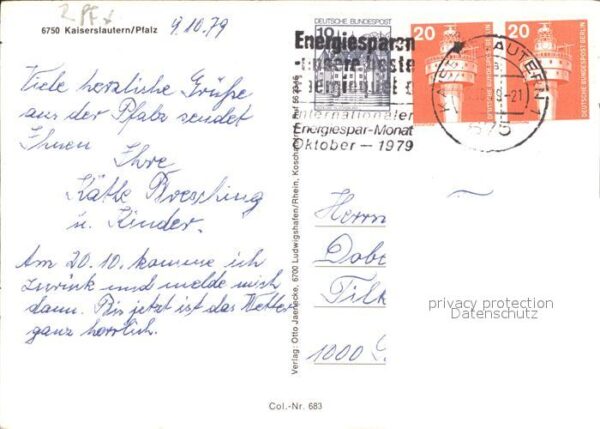 2 Pf
6750 Kaiserslautern/Pfalz
9.10.79
Viele herzliche Grüße
aus der Pfalz sendet
Ihnen Ihre
Käthe
u. Kinder.
Am 20.10. komme ich
zurück und melde mich
dann. Bis jetzt ist das Wetter
ganz herrlich.
Verlag: Otto Jaenecke, 6700 Ludwigshafen/Rhein,
DEUTSCHE BUNDESPOST
10
Energiesparen
-unsere beste
Energiequelle
Internationaler
Energiespar-Monat
Oktober – 1979
20
DEUTSCHE BUNDESPOST BERLIN
20
DEUTSCHE BUNDESPOST BERLIN
KAISERSLAUTERN 1
-21
675
Herrn
1000
privacy protection
Datenschutz
Col.-Nr. 683